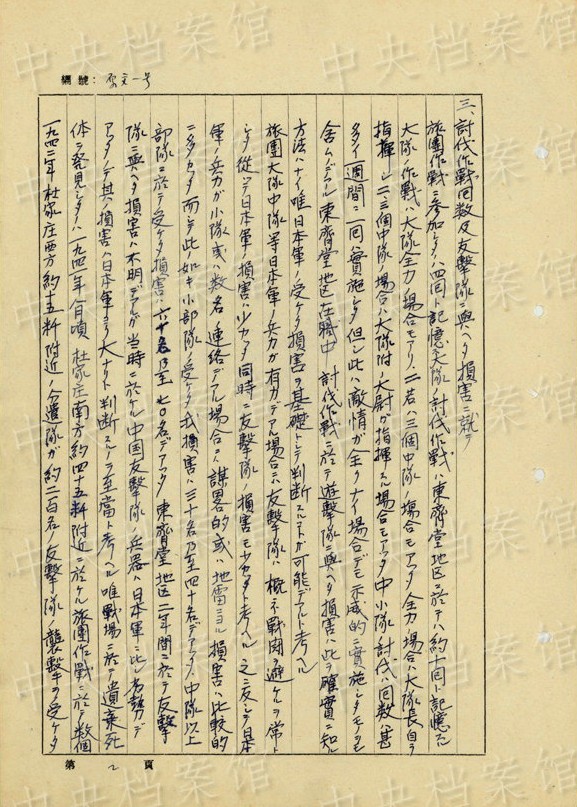 中央档案馆
編號：原文一号
三、討伐作戦回数及反撃隊ニ與ヘタ損害ニ就テ
旅團作戦ニ参加シタノハ四回ト記憶ス大隊ノ討伐作戦ハ東齊堂地区ニ於テハ約十回ト記憶スル
大隊ノ作戦ハ大隊全力ノ場合モアリ二若ハ三個中隊ノ場合モアッタ全力ノ場合ハ大隊長自ラ
指揮シ二三個中隊ノ場合ハ大隊附大尉ガ指揮スル場合モアッタ中小隊ノ討伐ハ回数ハ甚
多イ一週間ニ一回ハ實施シタ但シ此ハ敵情ガ全クナイ場合デモ示威的ニ實施シタモノヲモ
含ムノデアル東齊堂地区在職中討伐作戦ニ於テ遊撃隊ニ與ヘタ損害ハ此ヲ確實ニ知ル
方法ハナイ唯日本軍ノ受ケタ損害ヲ基礎トシテ判断スルコトガ可能デアルト考ヘル
旅團大隊中隊等日本軍ノ兵力ガ有力デアル場合ニハ反撃隊ハ概ネ戦闘ヲ避ケルヲ常ト
シタ従ッテ日本軍ノ損害ハ少カッタ同時ニ反撃隊ノ損害モ少カッタト考ヘル之ニ反シテ日本
軍ノ兵力ガ小隊或ハ数名ノ連絡デアル場合ニハ謀略的或ハ地雷ニヨル損害ハ比較的
ニ多カッタ而シテ此ノ如キ小部隊ノ受ケタ我損害ハ三十名乃至四十名デアッタ中隊以上
部隊ニ於テ受ケタ損害ハ六十名乃至七〇名デアッタ東齊堂地区二年間ニ於テ反撃
隊ニ與ヘタ損害ハ不明デアルガ当時ニ於ケル中国反撃隊ノ兵器ハ日本軍ニ比シ劣勢デ
アッタノデ其ノ損害ハ日本軍ヨリ大ナリト判断スルノヲ至當ト考ヘル唯戦場ニ於テ遺棄死
体ヲ発見シタノハ一九四一年八月頃杜家庄南方約四十五粁附近ニ於ケル旅團作戦ニ於テ数個
一九四二年杜家庄西方約十五粁附近ノ分遣隊ガ約二百名ノ反撃隊ノ襲撃ヲ受ケタ
第 2 頁